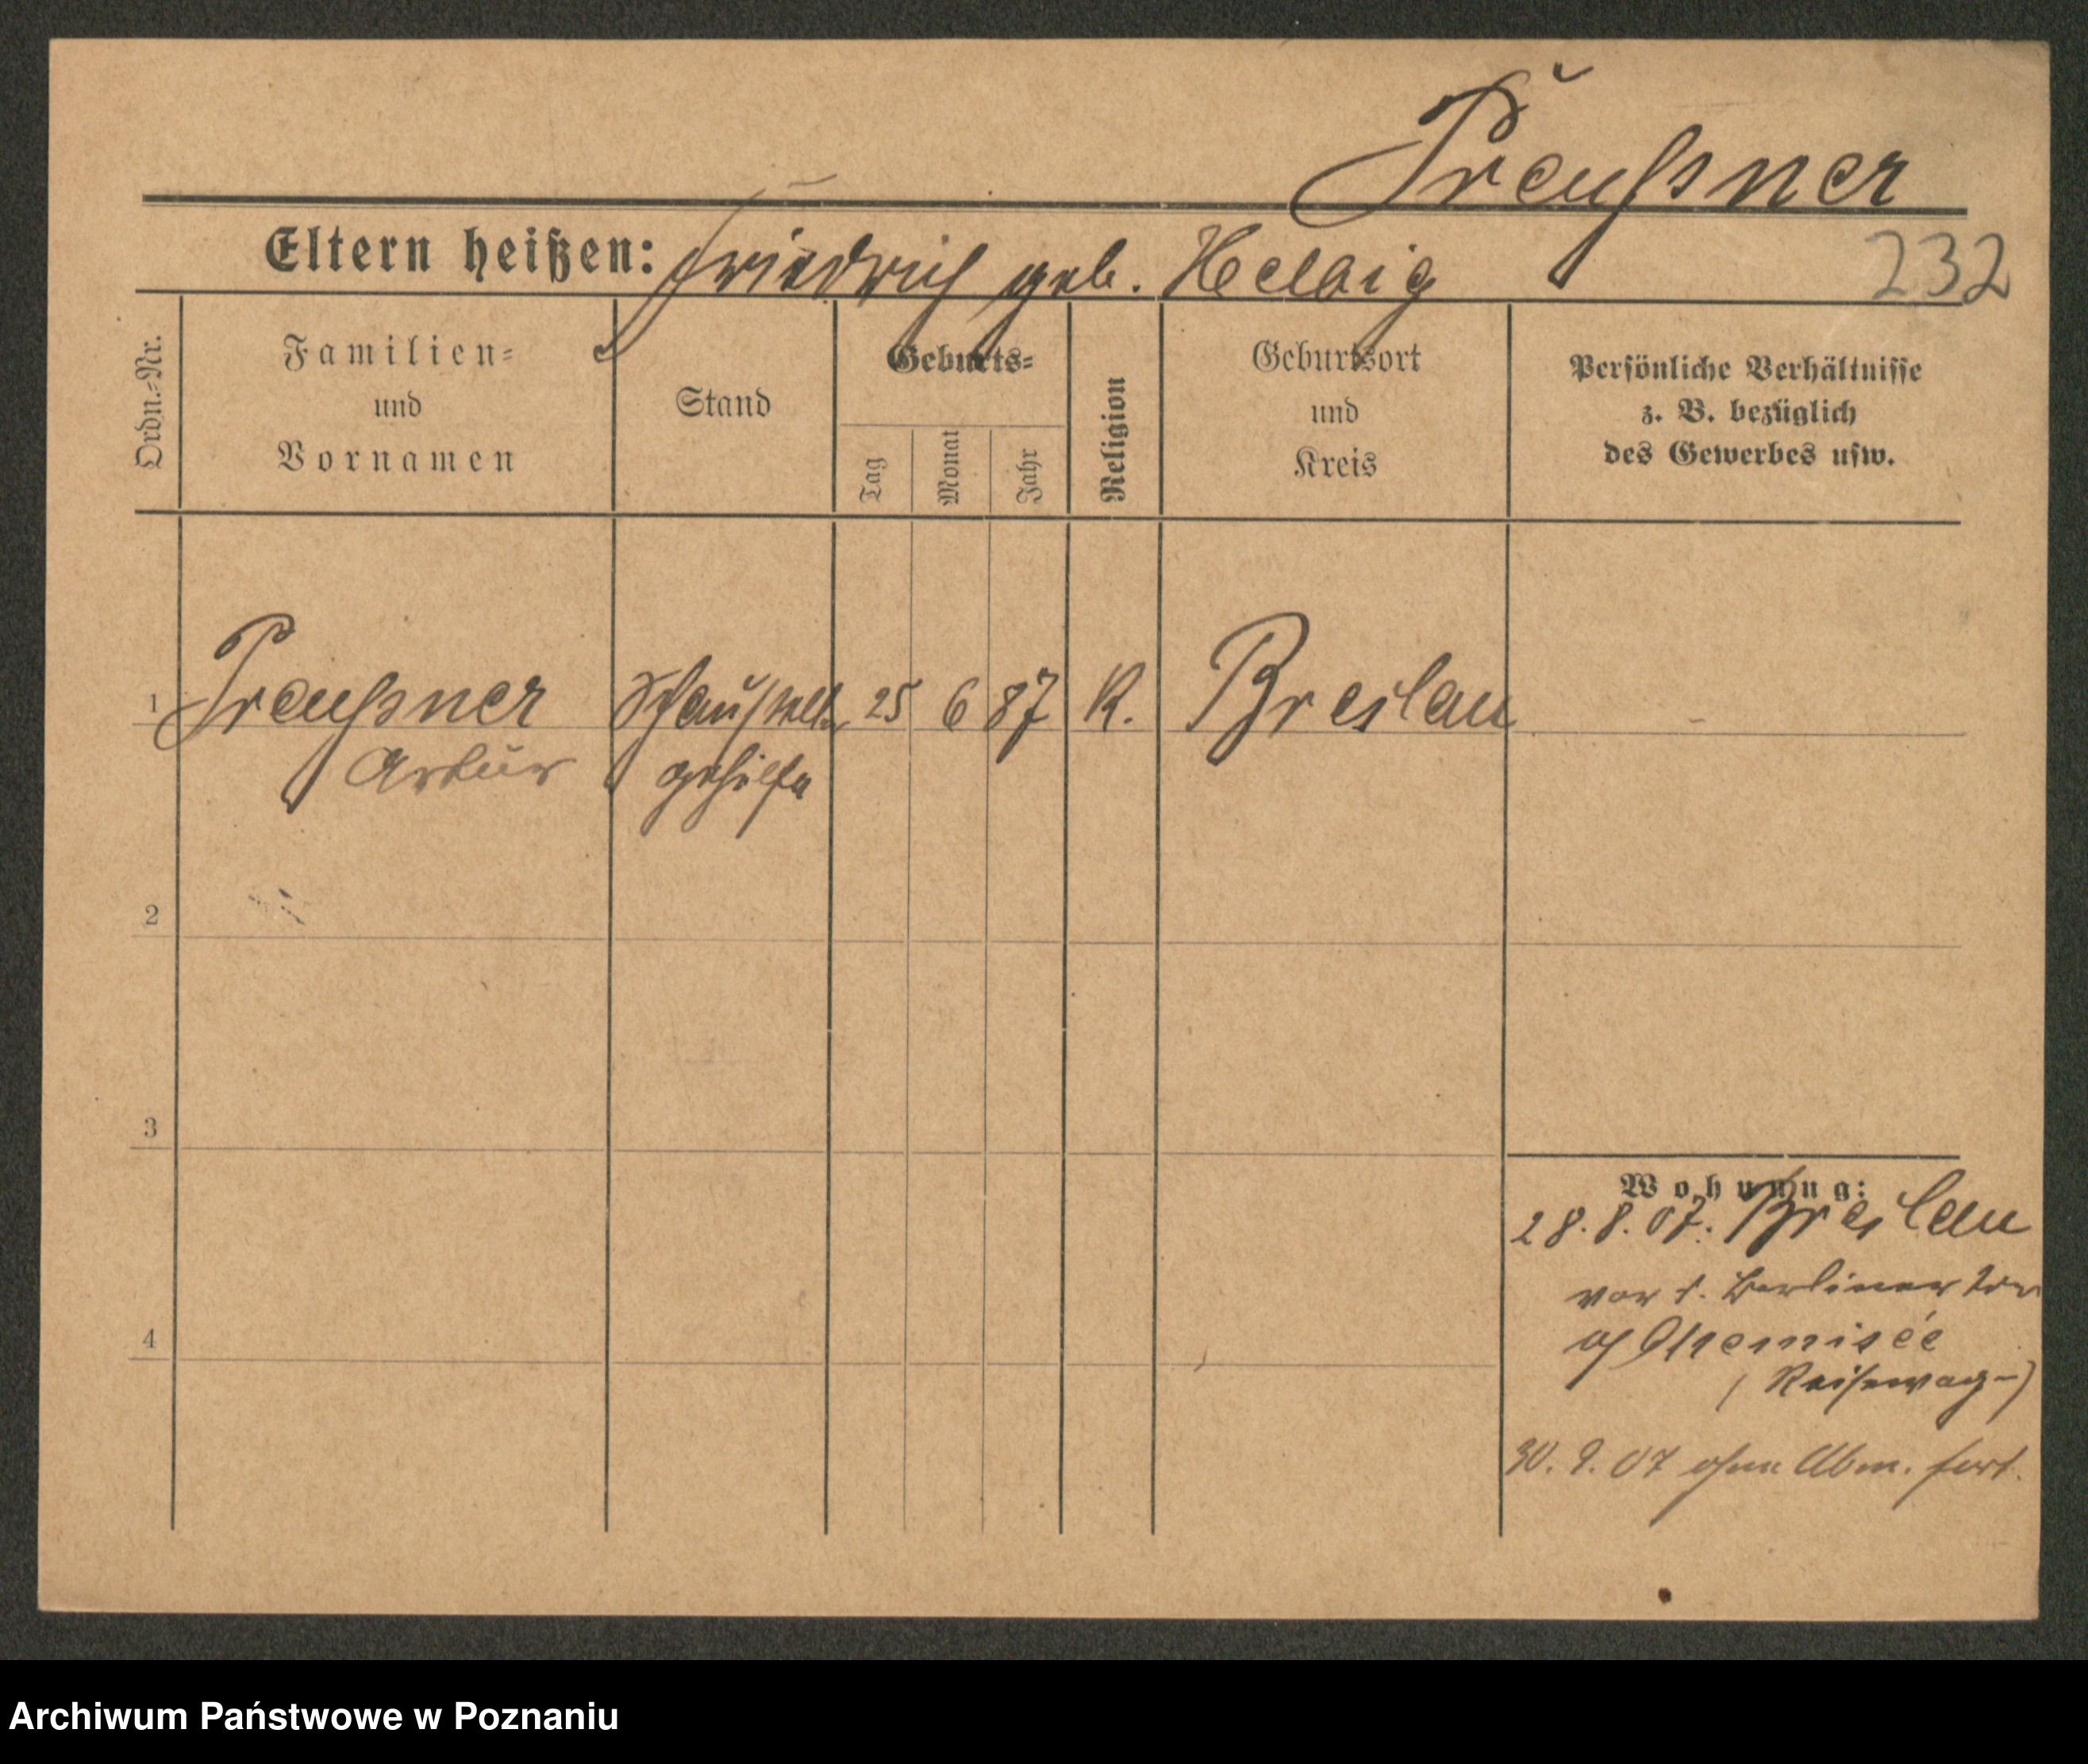 Preußner
Eltern heißen: Friedrich geb. Helbig
232
Ordn.-Nr.
Familien-
und
Vornamen
Stand
Geburts-
Tag
Monat
Jahr
Religion
Geburtsort
und
Kreis
Persönliche Verhältnisse
z. B. bezüglich
des Gewerbes usw.
1 Preußner Schaustell. 25 6 87 K. Breslau
Artur gehilfe
2
3
4
Wohnung:
28.8.07. Breslau
vor d. Berliner Tor
(Reisewag-)
30.9.07 ohne Abm. fort.
Archiwum Państwowe w Poznaniu